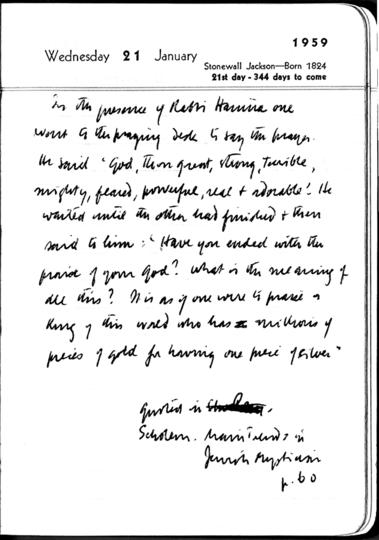 1959
Wednesday 21 January
Stonewall Jackson—Born 1824
21st day - 344 days to come
In the presence of Rabbi Hanina one
went to the praying desk to say the prayer.
He said 'God, thou great, strong, terrible,
mighty, feared, powerful, real + adorable'. He
waited until the other had finished + then
said to him: 'Have you ended with the
praise of your God? What is the meaning of
all this? It is as if one were to praise a
King of this world who has millions of
pieces of gold for having one piece of silver"
quoted in
Scholem. Main Trends in
Jewish Mysticism
p. 60